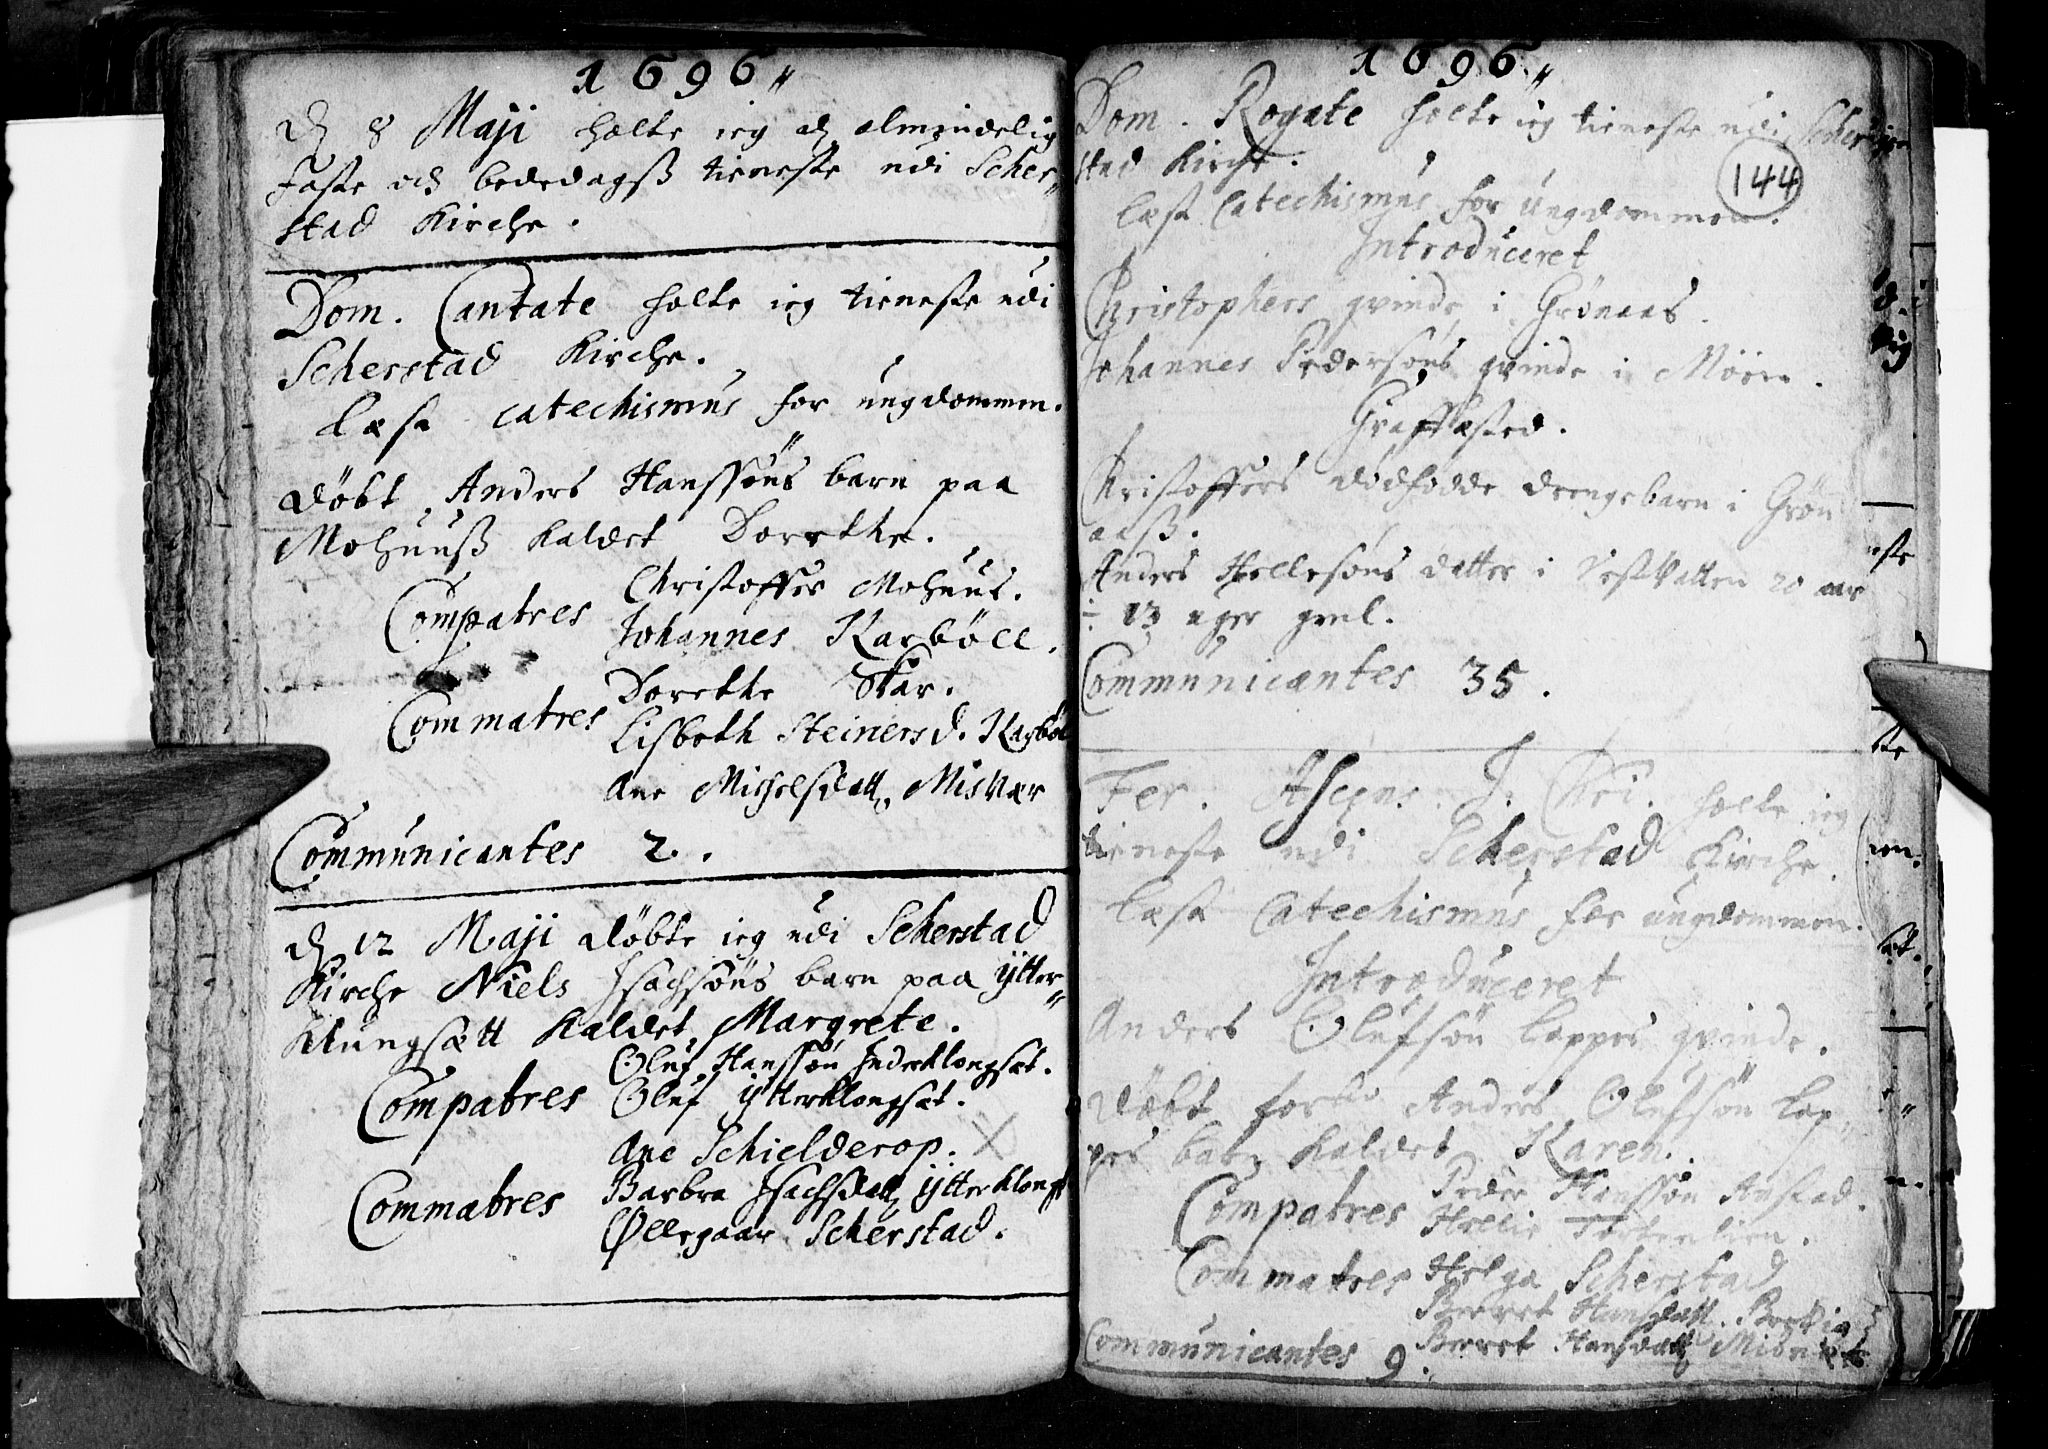 1696
d 8 Maji holte ieg d almindelig
Faste och bededagß tieneste udi Scher-
stad Kirche.
Dom. Cantate holte ieg tieneste udi
Scherstad Kirche.
læste catechismus for ungdommen.
døbt Anders Hanssøns barn paa
Mohuuß kaldet Dorethe.
Compatres Christoffer Mohuus.
Johannes Karbøll.
Commatres Dorethe Skar.
Lisbeth Steinersd. Karbøl
Ane Michelsdatt, Misvær
Communicantes 2.
d 12 Maji døbte ieg udi Scherstad
Kirche Niels Isachsøns barn paa ytter-
Klungsætt kaldet Margrete.
Oluf Hanssøn Inderklongset.
Compatres Oluf ytterklongset.
Ane Schielderop.
Commatres Barbra Isachsdatt ytterklongs
Øllegaar Scherstad.
1696
Dom. Rogate holte ieg tieneste udi Scher
stad Kirche.
144
læst Catechismus for ungdommen.
Introduceret
Christophers qvinde i Grønaas.
Johannes Pedersøns qvinde i Møen.
Graffæsted.
Kristoffers dødfødde drengebarn i Grøn
aaß.
Anders Hellesøns datter i Vestvatten 20 aar
÷ 13 uger gml.
Communicantes 35.
Fer. Ascens. J. Chri. holte ieg
tieneste udi Scherstad Kirche.
læst Catechismus for ungdommen.
Introduceret
Anders Olufsøn Lappes qvinde.
døbt for Anders Olufsøn Lap-
pes barn kaldet Karen.
Compatres Peder Hanssøn Anstad.
Helie Tortenlien.
Commatres Helga Scherstad
Berret Hansdatt.
Communicantes 9. Berret Hansdatt